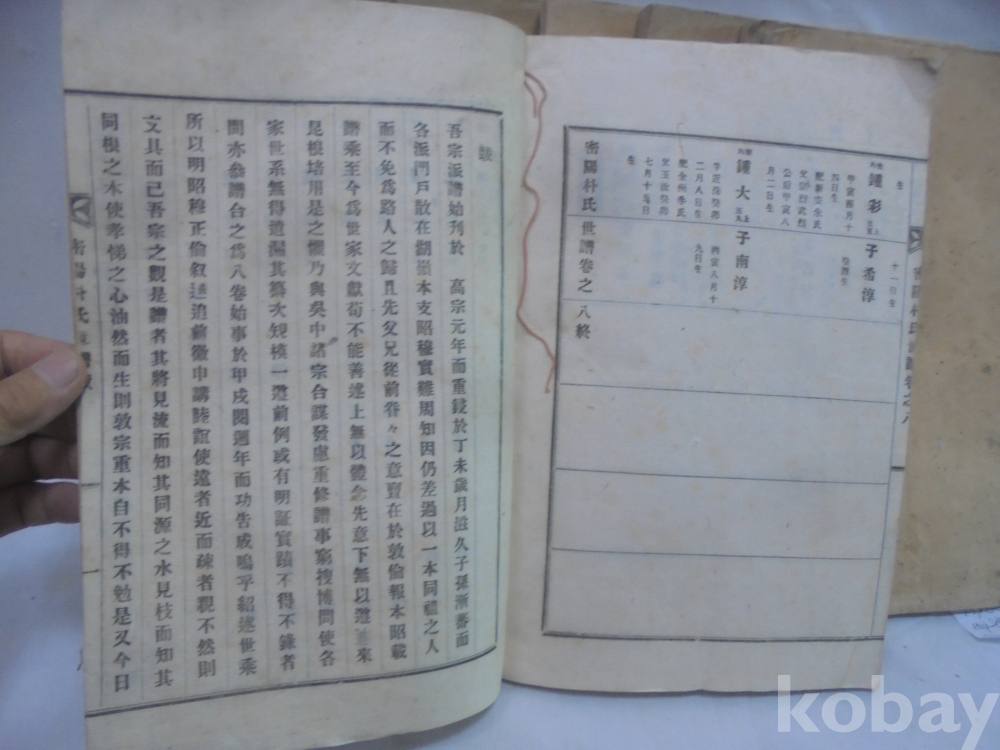 密陽朴氏世譜卷之八
生 十一日生
鍾彩 子希淳
甲寅 月十 癸酉生
四日生
月二日生
鍾大 子南淳
二月八日生 丙寅八月十
配全州李氏 九日生
七月十 日
生
密陽朴氏世譜卷之八終
跋
吾宗派譜始刊於 高宗元年而重鋟於丁未歲月滋久子孫漸蕃而
各派門戶散在湖嶺本支昭穆實難周知因仍差過以一本同祖之人
而不免爲路人之歸且先父兄從前眷々之意亶在於敦倫報本昭載
譜乘至今爲世家文獻苟不能善述上無以體念先意下無以遵 來
昆根培用是之懼乃與吳中諸宗合謀發慮重修譜事窮搜博問使各
家世系無得遺漏其纂次規模一遵前例或有明証實蹟不得不錄者
間亦參譜合之爲八卷始事於甲戌閱週年而功告成嗚乎紹述世乘
所以明昭穆正倫敍 追前徽申講睦誼使遠者近而疎者親不然則
文具而已吾宗之觀是譜者其將見流而知其同源之水見枝而知其
同根之木使孝悌之心油然而生則敦宗重本自不得不勉是又今日
密陽朴氏世譜跋
kobay